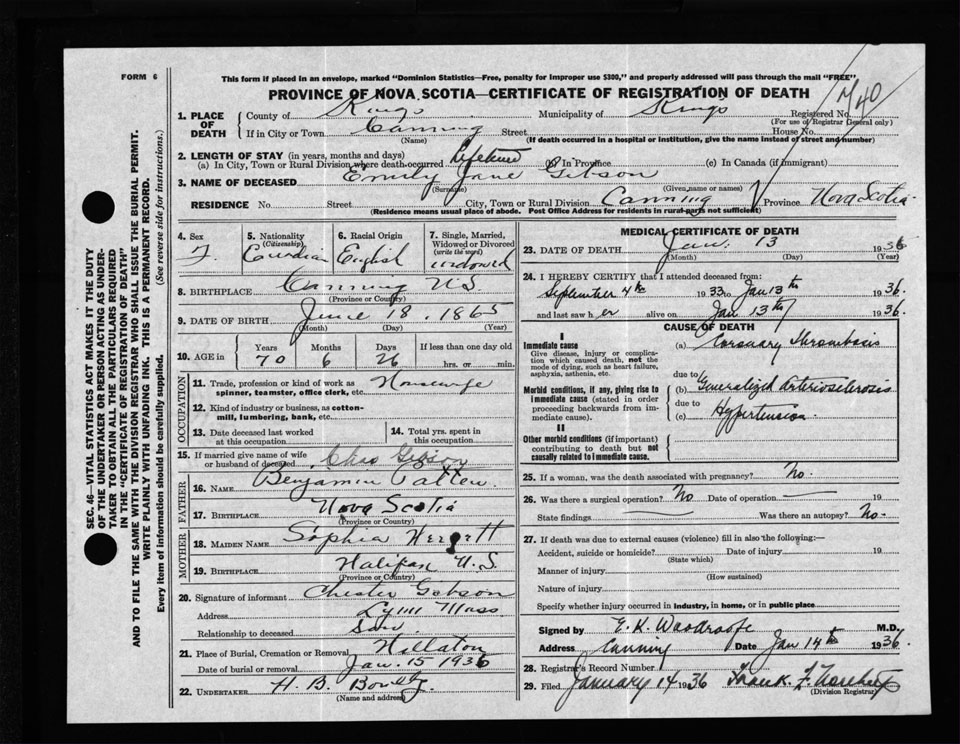 FORM 6
This form if placed in an envelope, marked "Dominion Statistics—Free, penalty for improper use $300," and properly addressed will pass through the mail "FREE"
PROVINCE OF NOVA SCOTIA—CERTIFICATE OF REGISTRATION OF DEATH
1. PLACE OF DEATH County of Kings Municipality of Kings Registered No. 740
(For use of Registrar General only)
If in City or Town Canning Street House No.
(Name) (If death occurred in a hospital or institution, give the name instead of street and number)
2. LENGTH OF STAY (in years, months and days)
(a) In City, Town or Rural Division where death occurred Lifetime (b) In Province (c) In Canada (if immigrant)
3. NAME OF DECEASED Emily Jane Gibson
(Surname) (Given name or names)
RESIDENCE No. Street City, Town or Rural Division Canning Province Nova Scotia
(Residence means usual place of abode. Post Office Address for residents in rural parts not sufficient)
SEC. 46—VITAL STATISTICS ACT MAKES IT THE DUTY
OF THE UNDERTAKER OR PERSON ACTING AS UNDER-
TAKER TO OBTAIN ALL THE PARTICULARS REQUIRED
IN THE "CERTIFICATE OF REGISTRATION OF DEATH"
AND TO FILE THE SAME WITH THE DIVISION REGISTRAR WHO SHALL ISSUE THE BURIAL PERMIT.
WRITE PLAINLY WITH UNFADING INK. THIS IS A PERMANENT RECORD.
Every item of information should be carefully supplied. (See reverse side for instructions.)
4. Sex 5. Nationality (Citizenship) 6. Racial Origin 7. Single, Married, Widowed or Divorced (write the word)
F. English widowed
8. BIRTHPLACE Canning N.S.
(Province or Country)
9. DATE OF BIRTH June 18, 1865
(Month) (Day) (Year)
10. AGE in Years Months Days If less than one day
70 6 26 hrs. or min.
OCCUPATION
11. Trade, profession or kind of work as spinner, teamster, office clerk, etc. Housewife
12. Kind of industry or business, as cotton-mill, lumbering, bank, etc.
13. Date deceased last worked at this occupation
14. Total yrs. spent in this occupation
15. If married give name of wife or husband of deceased Chas Gibson
FATHER
16. NAME Benjamin Patten
17. BIRTHPLACE Nova Scotia
(Province or Country)
MOTHER
18. MAIDEN NAME Sophia
19. BIRTHPLACE Halifax N.S
(Province or Country)
20. Signature of informant Chester Gibson
Address Lynn Mass
Relationship to deceased Son
21. Place of Burial, Cremation or Removal Hillaton
Date of burial or removal Jan. 15 1936
22. UNDERTAKER H. B.
(Name and address)
MEDICAL CERTIFICATE OF DEATH
23. DATE OF DEATH Jan. 13 1936
(Month) (Day) (Year)
24. I HEREBY CERTIFY that I attended deceased from:
September 4th 1933 to Jan 13th 1936.
and last saw her alive on Jan 13th 1936.
CAUSE OF DEATH
I
Immediate cause
Give disease, injury or complication which caused death, not the mode of dying, such as heart failure, asphyxia, asthenia, etc.
(a) Coronary thrombosis
due to
Morbid conditions, if any, giving rise to immediate cause (stated in order proceeding backwards from immediate cause).
(b) Generalized arteriosclerosis
due to
(c) Hypertension
II
Other morbid conditions (if important) contributing to death but not causally related to immediate cause.
25. If a woman, was the death associated with pregnancy? No.
26. Was there a surgical operation? No Date of operation 19
State findings Was there an autopsy? No.
27. If death was due to external causes (violence) fill in also the following:—
Accident, suicide or homicide? Date of injury 19
(State which)
Manner of injury
(How sustained)
Nature of injury
Specify whether injury occurred in industry, in home, or in public place
Signed by E. K. Woodroofe M.D.
Address Canning Date Jan 14th 1936
28. Registrar's Record Number
29. Filed January 14 1936 Frank F.
(Division Registrar)